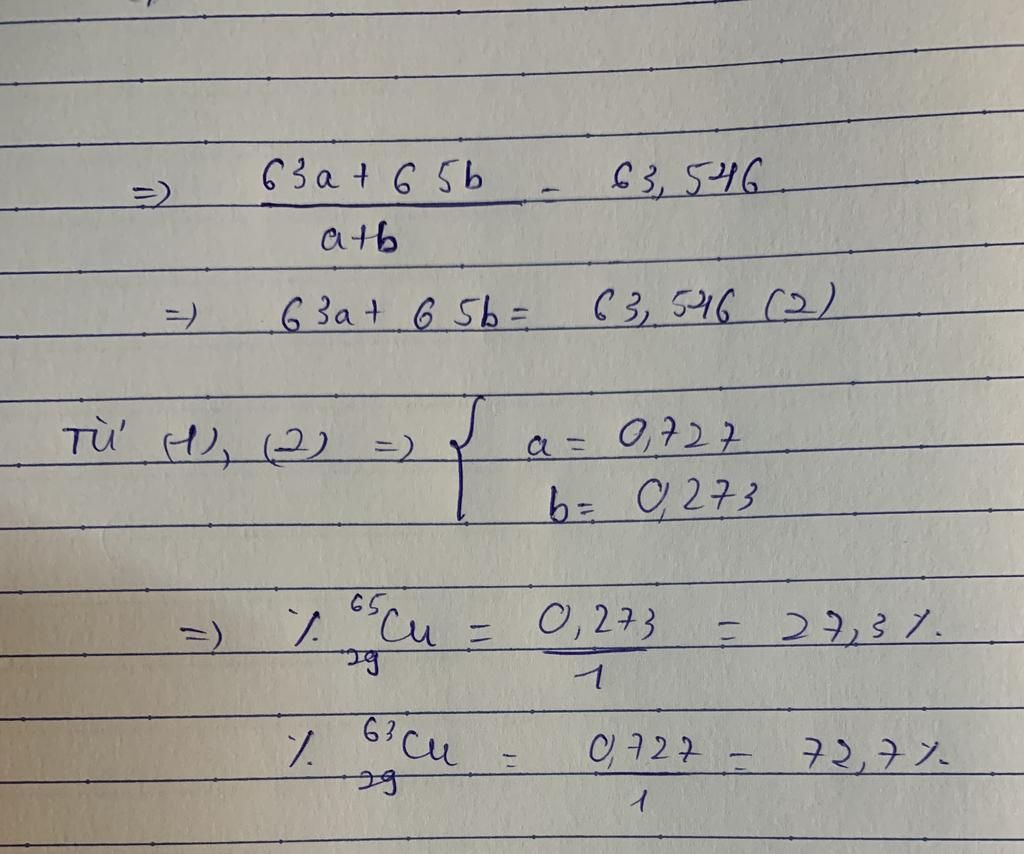 => 63a + 65b / a+b = 63,546
=> 63a + 65b = 63,546 (2)
Từ (1), (2) => { a = 0,727
b = 0,273
=> % ⁶⁵₂₉Cu = 0,273 / 1 = 27,3%
% ⁶³₂₉Cu = 0,727 / 1 = 72,7%